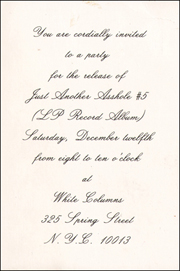 You are cordially invited
to a party
for the release of
Just Another Asshole #5
(LP Record Album)
Saturday, December twelfth
from eight to ten o'clock
at
White Columns
325 Spring Street
N.Y.C. 10013